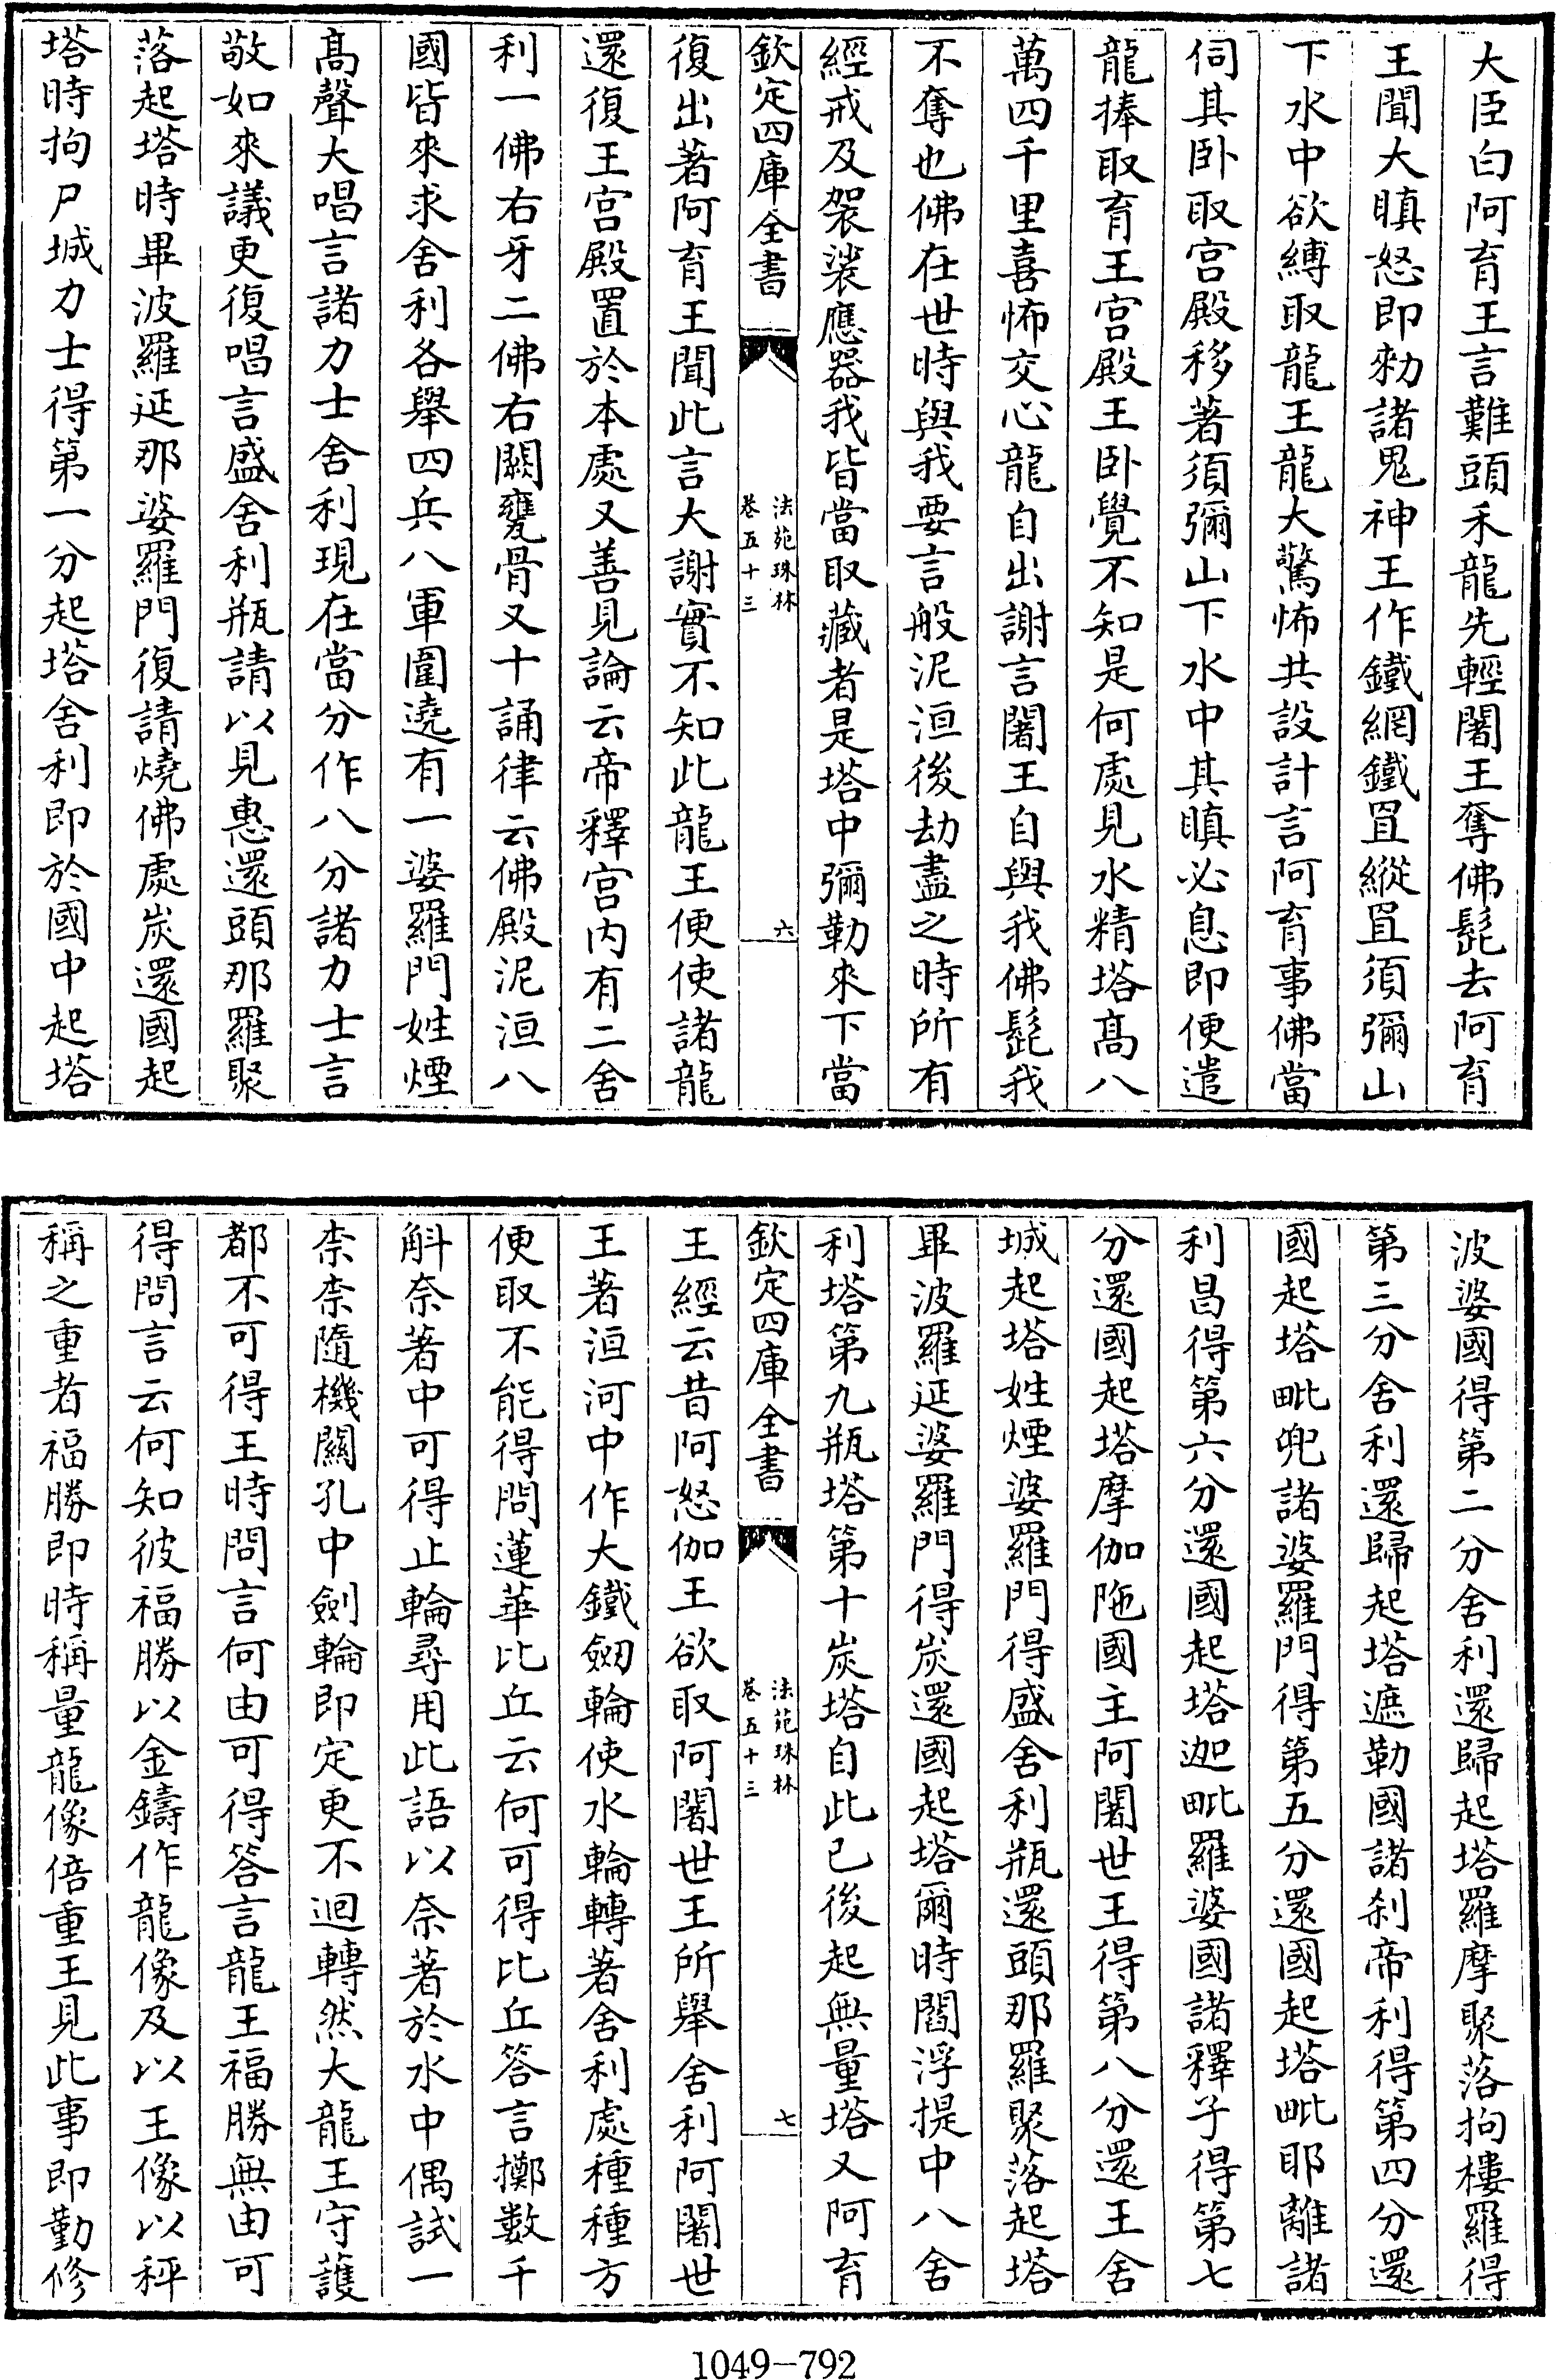 大臣白阿育王言難頭禾龍先輕闍王奪佛髭去阿育
王聞大瞋怒即勑諸鬼神王作鐵網鐵罝縱罝須彌山
下水中欲縛取龍王龍大驚怖共設計言阿育事佛當
伺其卧取宫殿移著須彌山下水中其瞋必息即便遣
龍捧取育王宫殿王卧覺不知是何處見水精塔髙八
萬四千里喜怖交心龍自出謝言闍王自與我佛髭我
不奪也佛在世時與我要言般泥洹後劫盡之時所有
經戒及袈裟應器我皆當取藏者是塔中彌勒來下當
欽定四庫全書
法苑珠林
卷五十三
六
復出著阿育王聞此言大謝實不知此龍王便使諸龍
還復王宫殿置於本處又善見論云帝釋宫内有二舍
利一佛右牙二佛右闕甕骨又十誦律云佛殿泥洹八
國皆來求舍利各舉四兵八軍圍遶有一婆羅門姓煙
髙聲大唱言諸力士舍利現在當分作八分諸力士言
敬如來議更復唱言盛舍利瓶請以見惠還頭那羅聚
落起塔時畢波羅延那婆羅門復請燒佛處炭還國起
塔時拘尸城力士得第一分起塔舍利即於國中起塔
波婆國得第二分舍利還歸起塔羅摩聚落拘樓羅得
第三分舍利還歸起塔遮勒國諸刹帝利得第四分還
國起塔毗兜諸婆羅門得第五分還國起塔毗耶離諸
利昌得第六分還國起塔迦毗羅婆國諸釋子得第七
分還國起塔摩伽陁國主阿闍世王得第八分還王舍
城起塔姓煙婆羅門得盛舍利瓶還頭那羅聚落起塔
畢波羅延婆羅門得炭還國起塔爾時閻浮提中八舍
利塔第九瓶塔第十炭塔自此已後起無量塔又阿育
欽定四庫全書
法苑珠林
卷五十三
七
王經云昔阿怒伽王欲取阿闍世王所舉舍利阿闍世
王著洹河中作大鐵劒輪使水輪轉著舍利處種種方
便取不能得問蓮華比丘云何可得比丘答言擲數千
斛柰著中可得止輪尋用此語以柰著於水中偶試一
柰柰隨機關孔中劍輪即定更不迴轉然大龍王守護
都不可得王時問言何由可得答言龍王福勝無由可
得問言云何知彼福勝以金鑄作龍像及以王像以秤
稱之重者福勝即時稱量龍像倍重王見此事即勤修
1049-792